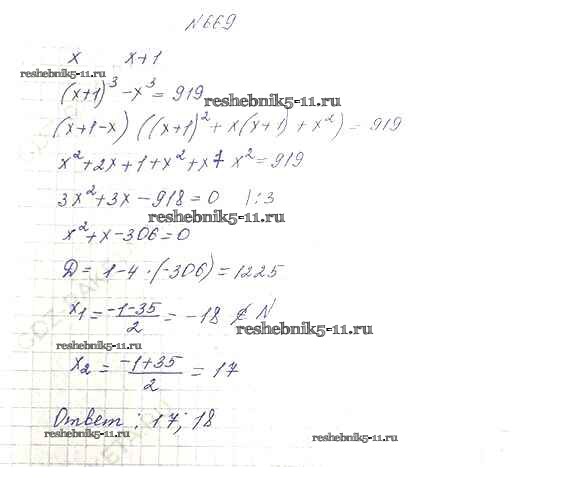 №669
x x+1
reshebnik5-11.ru
(x+1)³ - x³ = 919
reshebnik5-11.ru
(x+1-x) ((x+1)² + x(x+1) + x²) = 919
x² + 2x + 1 + x² + x + x² = 919
3x² + 3x - 918 = 0 |:3
reshebnik5-11.ru
x² + x - 306 = 0
Д = 1 - 4 · (-306) = 1225
x₁ = (-1-35)/2 = -18 ∉ N
reshebnik5-11.ru
reshebnik5-11.ru
x₂ = (-1+35)/2 = 17
Ответ: 17; 18
reshebnik5-11.ru
reshebnik5-11.ru